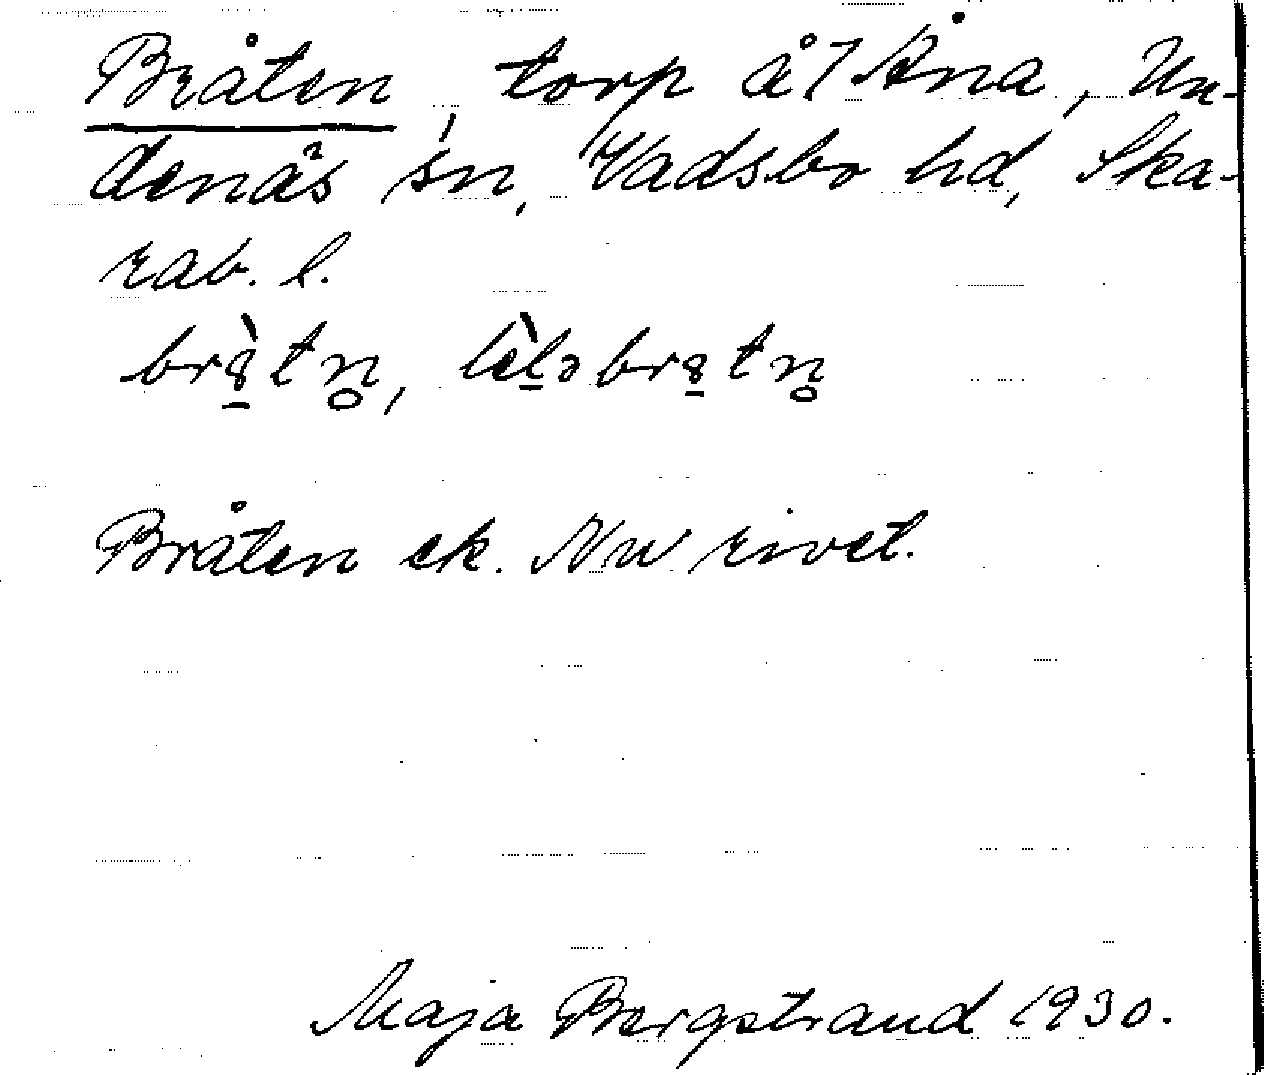 Bråten, torp å 7 Åna, Un-
denäs sn, Vadsbo hd, Ska-
rab. l.
brątn̥, lèlə brątn̥
Bråten ek. Nu rivet.
Maja Bergstrand 1930.